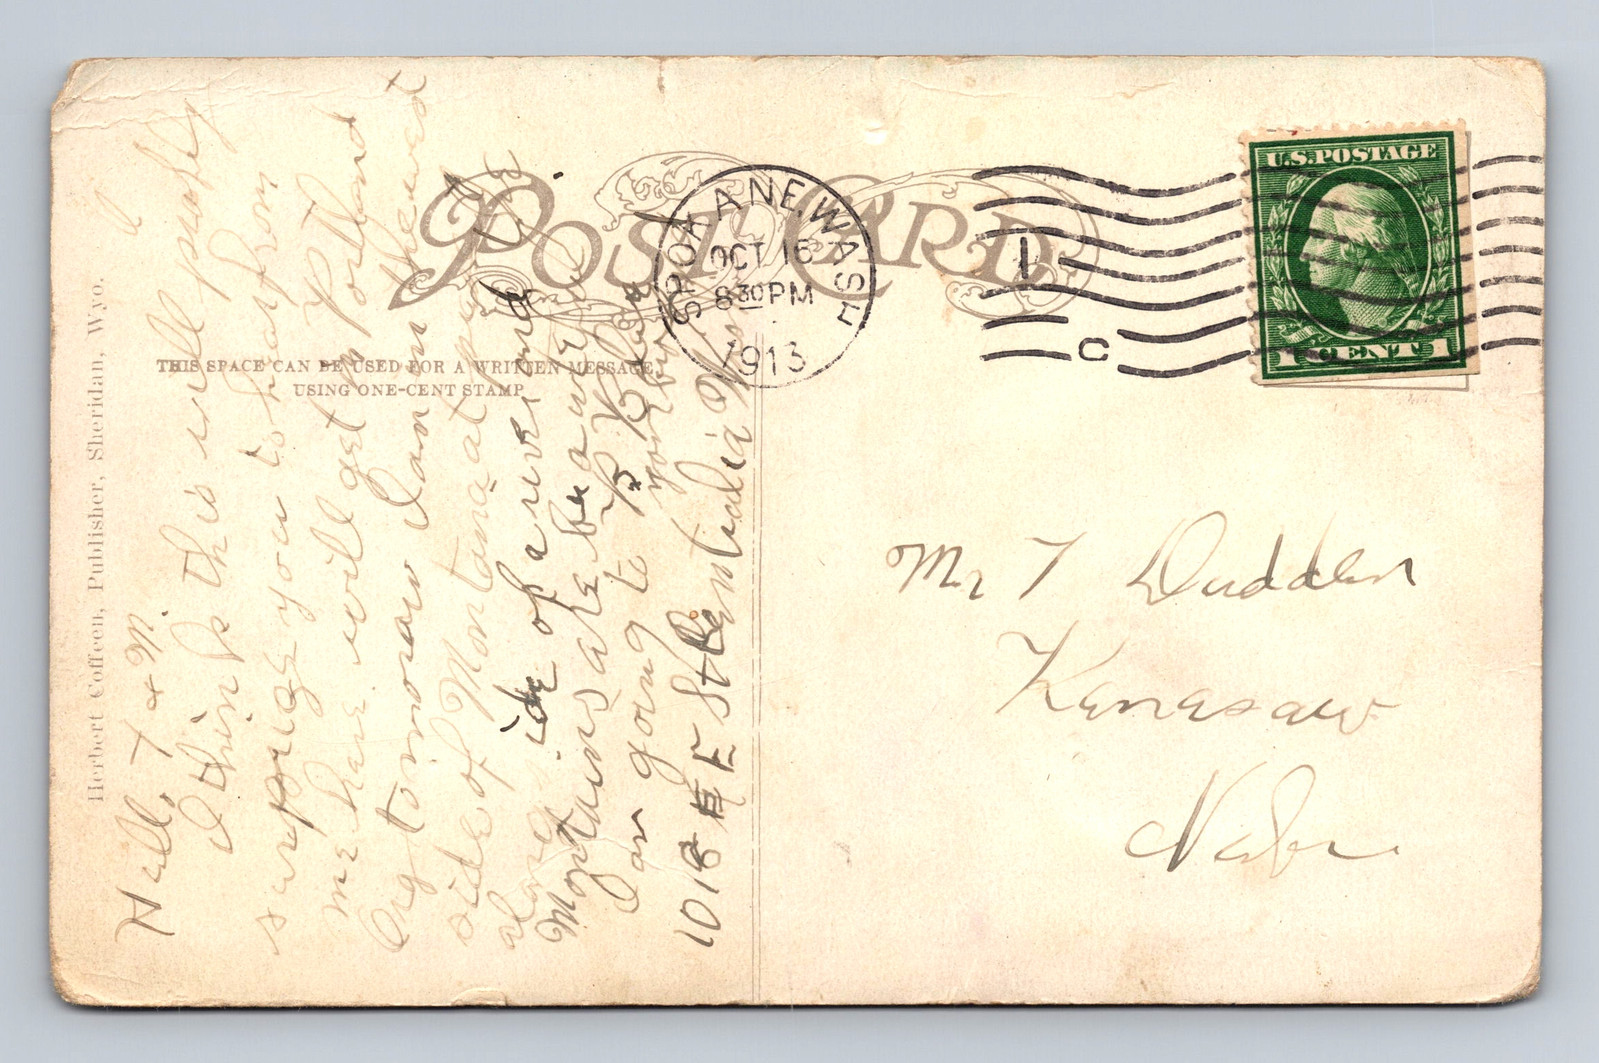 POST CARD
SPOKANE, WASH
OCT 16
8 30 PM
1913
1
C
U.S. POSTAGE
1 CENT 1
THIS SPACE CAN BE USED FOR A WRITTEN MESSAGE,
USING ONE-CENT STAMP
Herbert Coffeen, Publisher, Sheridan, Wyo.
Hello T & M.
I think this will
surprise you to hear from
me have will get to Portland
Org tomoraw I am
side of Montana at
along ide of a river and
Montains are
I am going to
1018 E St
Centralia
Mr T Dudden
Kenesaw
Nebr